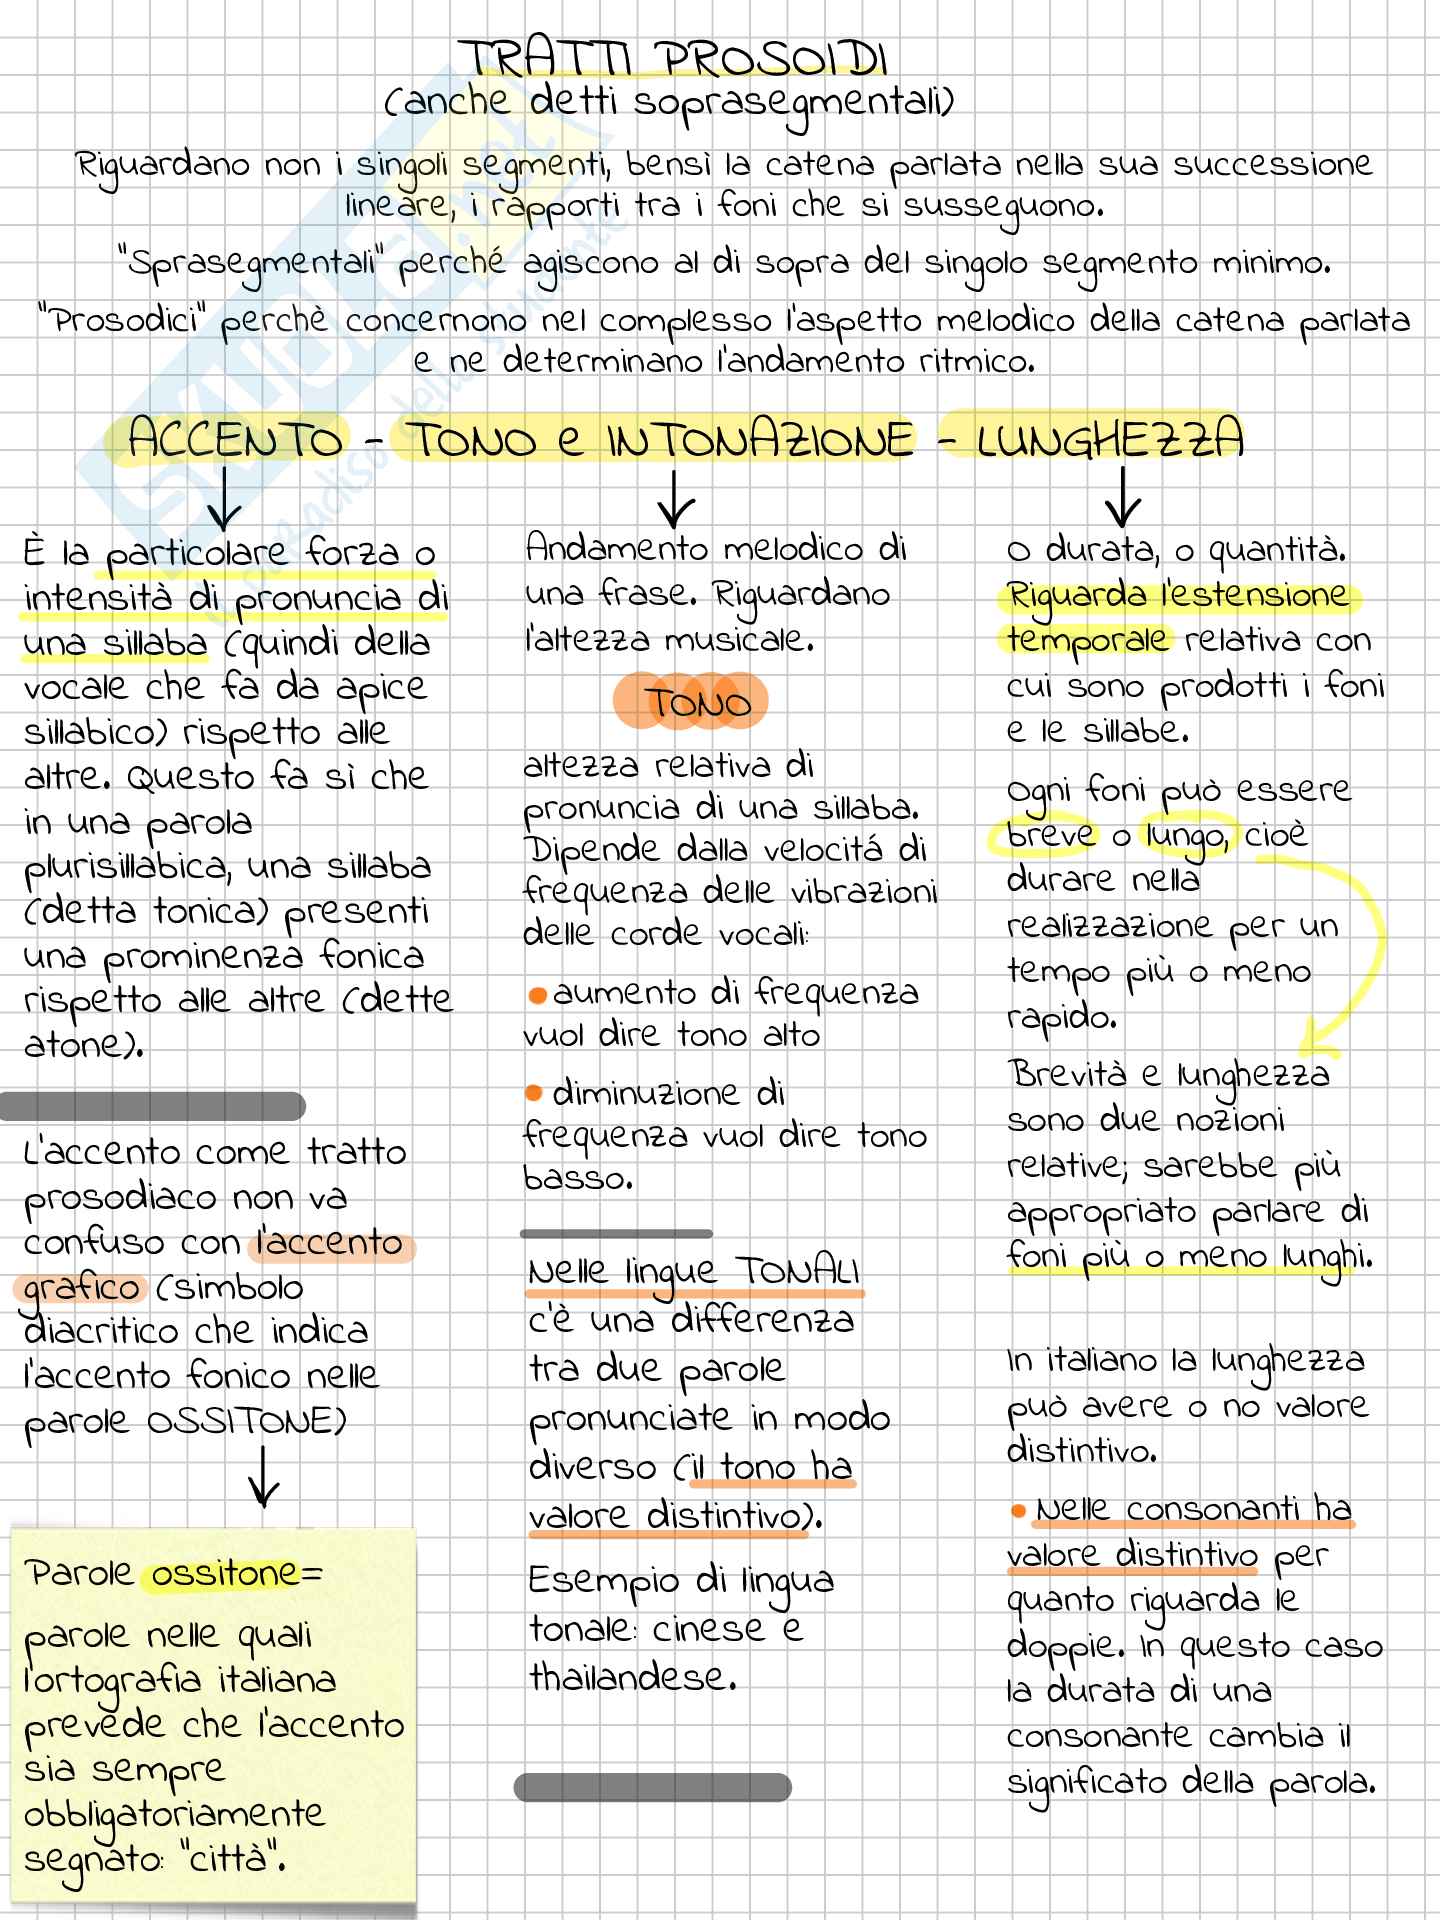 TRATTI PROSOIDI
(anche detti soprasegmentali)
Riguardano non i singoli segmenti, bensì la catena parlata nella sua successione
lineare, i rapporti tra i foni che si susseguono.
"Sprasegmentali" perché agiscono al di sopra del singolo segmento minimo.
"Prosodici" perchè concernono nel complesso l'aspetto melodico della catena parlata
e ne determinano l'andamento ritmico.
ACCENTO - TONO e INTONAZIONE - LUNGHEZZA
È la particolare forza o
intensità di pronuncia di
una sillaba (quindi della
vocale che fa da apice
sillabico) rispetto alle
altre. Questo fa sì che
in una parola
plurisillabica, una sillaba
(detta tonica) presenti
una prominenza fonica
rispetto alle altre (dette
atone).
L'accento come tratto
prosodiaco non va
confuso con l'accento
grafico (simbolo
diacritico che indica
l'accento fonico nelle
parole OSSITONE)
Parole ossitone=
parole nelle quali
l'ortografia italiana
prevede che l'accento
sia sempre
obbligatoriamente
segnato: "città".
Andamento melodico di
una frase. Riguardano
l'altezza musicale.
TONO
altezza relativa di
pronuncia di una sillaba.
Dipende dalla velocitá di
frequenza delle vibrazioni
delle corde vocali:
• aumento di frequenza
vuol dire tono alto
• diminuzione di
frequenza vuol dire tono
basso.
Nelle lingue TONALI
c'è una differenza
tra due parole
pronunciate in modo
diverso (il tono ha
valore distintivo).
Esempio di lingua
tonale: cinese e
thailandese.
o durata, o quantità.
Riguarda l'estensione
temporale relativa con
cui sono prodotti i foni
e le sillabe.
Ogni foni può essere
breve o lungo, cioè
durare nella
realizzazione per un
tempo più o meno
rapido.
Brevità e lunghezza
sono due nozioni
relative; sarebbe più
appropriato parlare di
foni più o meno lunghi.
In italiano la lunghezza
può avere o no valore
distintivo.
• Nelle consonanti ha
valore distintivo per
quanto riguarda le
doppie. In questo caso
la durata di una
consonante cambia il
significato della parola.
SKUOLA.net
il paradiso dello studente